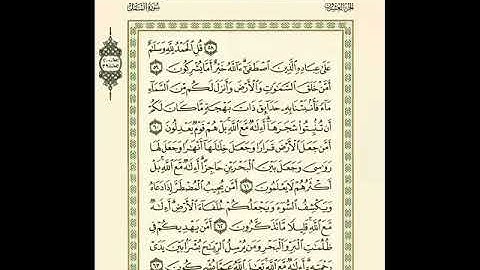 الجزء العشرون
سورة النمل
٥٨ قُلِ الْحَمْدُ لِلَّهِ وَسَلَامٌ
عَلَىٰ عِبَادِهِ الَّذِينَ اصْطَفَىٰ ءَاللَّهُ خَيْرٌ أَمَّا يُشْرِكُونَ ٥٩
أَمَّنْ خَلَقَ السَّمَاوَاتِ وَالْأَرْضَ وَأَنزَلَ لَكُم مِّنَ السَّمَاءِ
مَاءً فَأَنبَتْنَا بِهِ حَدَائِقَ ذَاتَ بَهْجَةٍ مَّا كَانَ لَكُمْ
أَن تُنبِتُوا شَجَرَهَا أَءِلَٰهٌ مَّعَ اللَّهِ بَلْ هُمْ قَوْمٌ يَعْدِلُونَ ٦٠
أَمَّن جَعَلَ الْأَرْضَ قَرَارًا وَجَعَلَ خِلَالَهَا أَنْهَارًا وَجَعَلَ لَهَا
رَوَاسِيَ وَجَعَلَ بَيْنَ الْبَحْرَيْنِ حَاجِزًا أَءِلَٰهٌ مَّعَ اللَّهِ بَلْ
أَكْثَرُهُمْ لَا يَعْلَمُونَ ٦١ أَمَّن يُجِيبُ الْمُضْطَرَّ إِذَا دَعَاهُ
وَيَكْشِفُ السُّوءَ وَيَجْعَلُكُمْ خُلَفَاءَ الْأَرْضِ أَءِلَٰهٌ
مَّعَ اللَّهِ قَلِيلًا مَّا تَذَكَّرُونَ ٦٢ أَمَّن يَهْدِيكُمْ فِي
ظُلُمَاتِ الْبَرِّ وَالْبَحْرِ وَمَن يُرْسِلُ الرِّيَاحَ بُشْرًا بَيْنَ يَدَيْ
رَحْمَتِهِ أَءِلَٰهٌ مَّعَ اللَّهِ تَعَالَى اللَّهُ عَمَّا يُشْرِكُونَ ٦٣